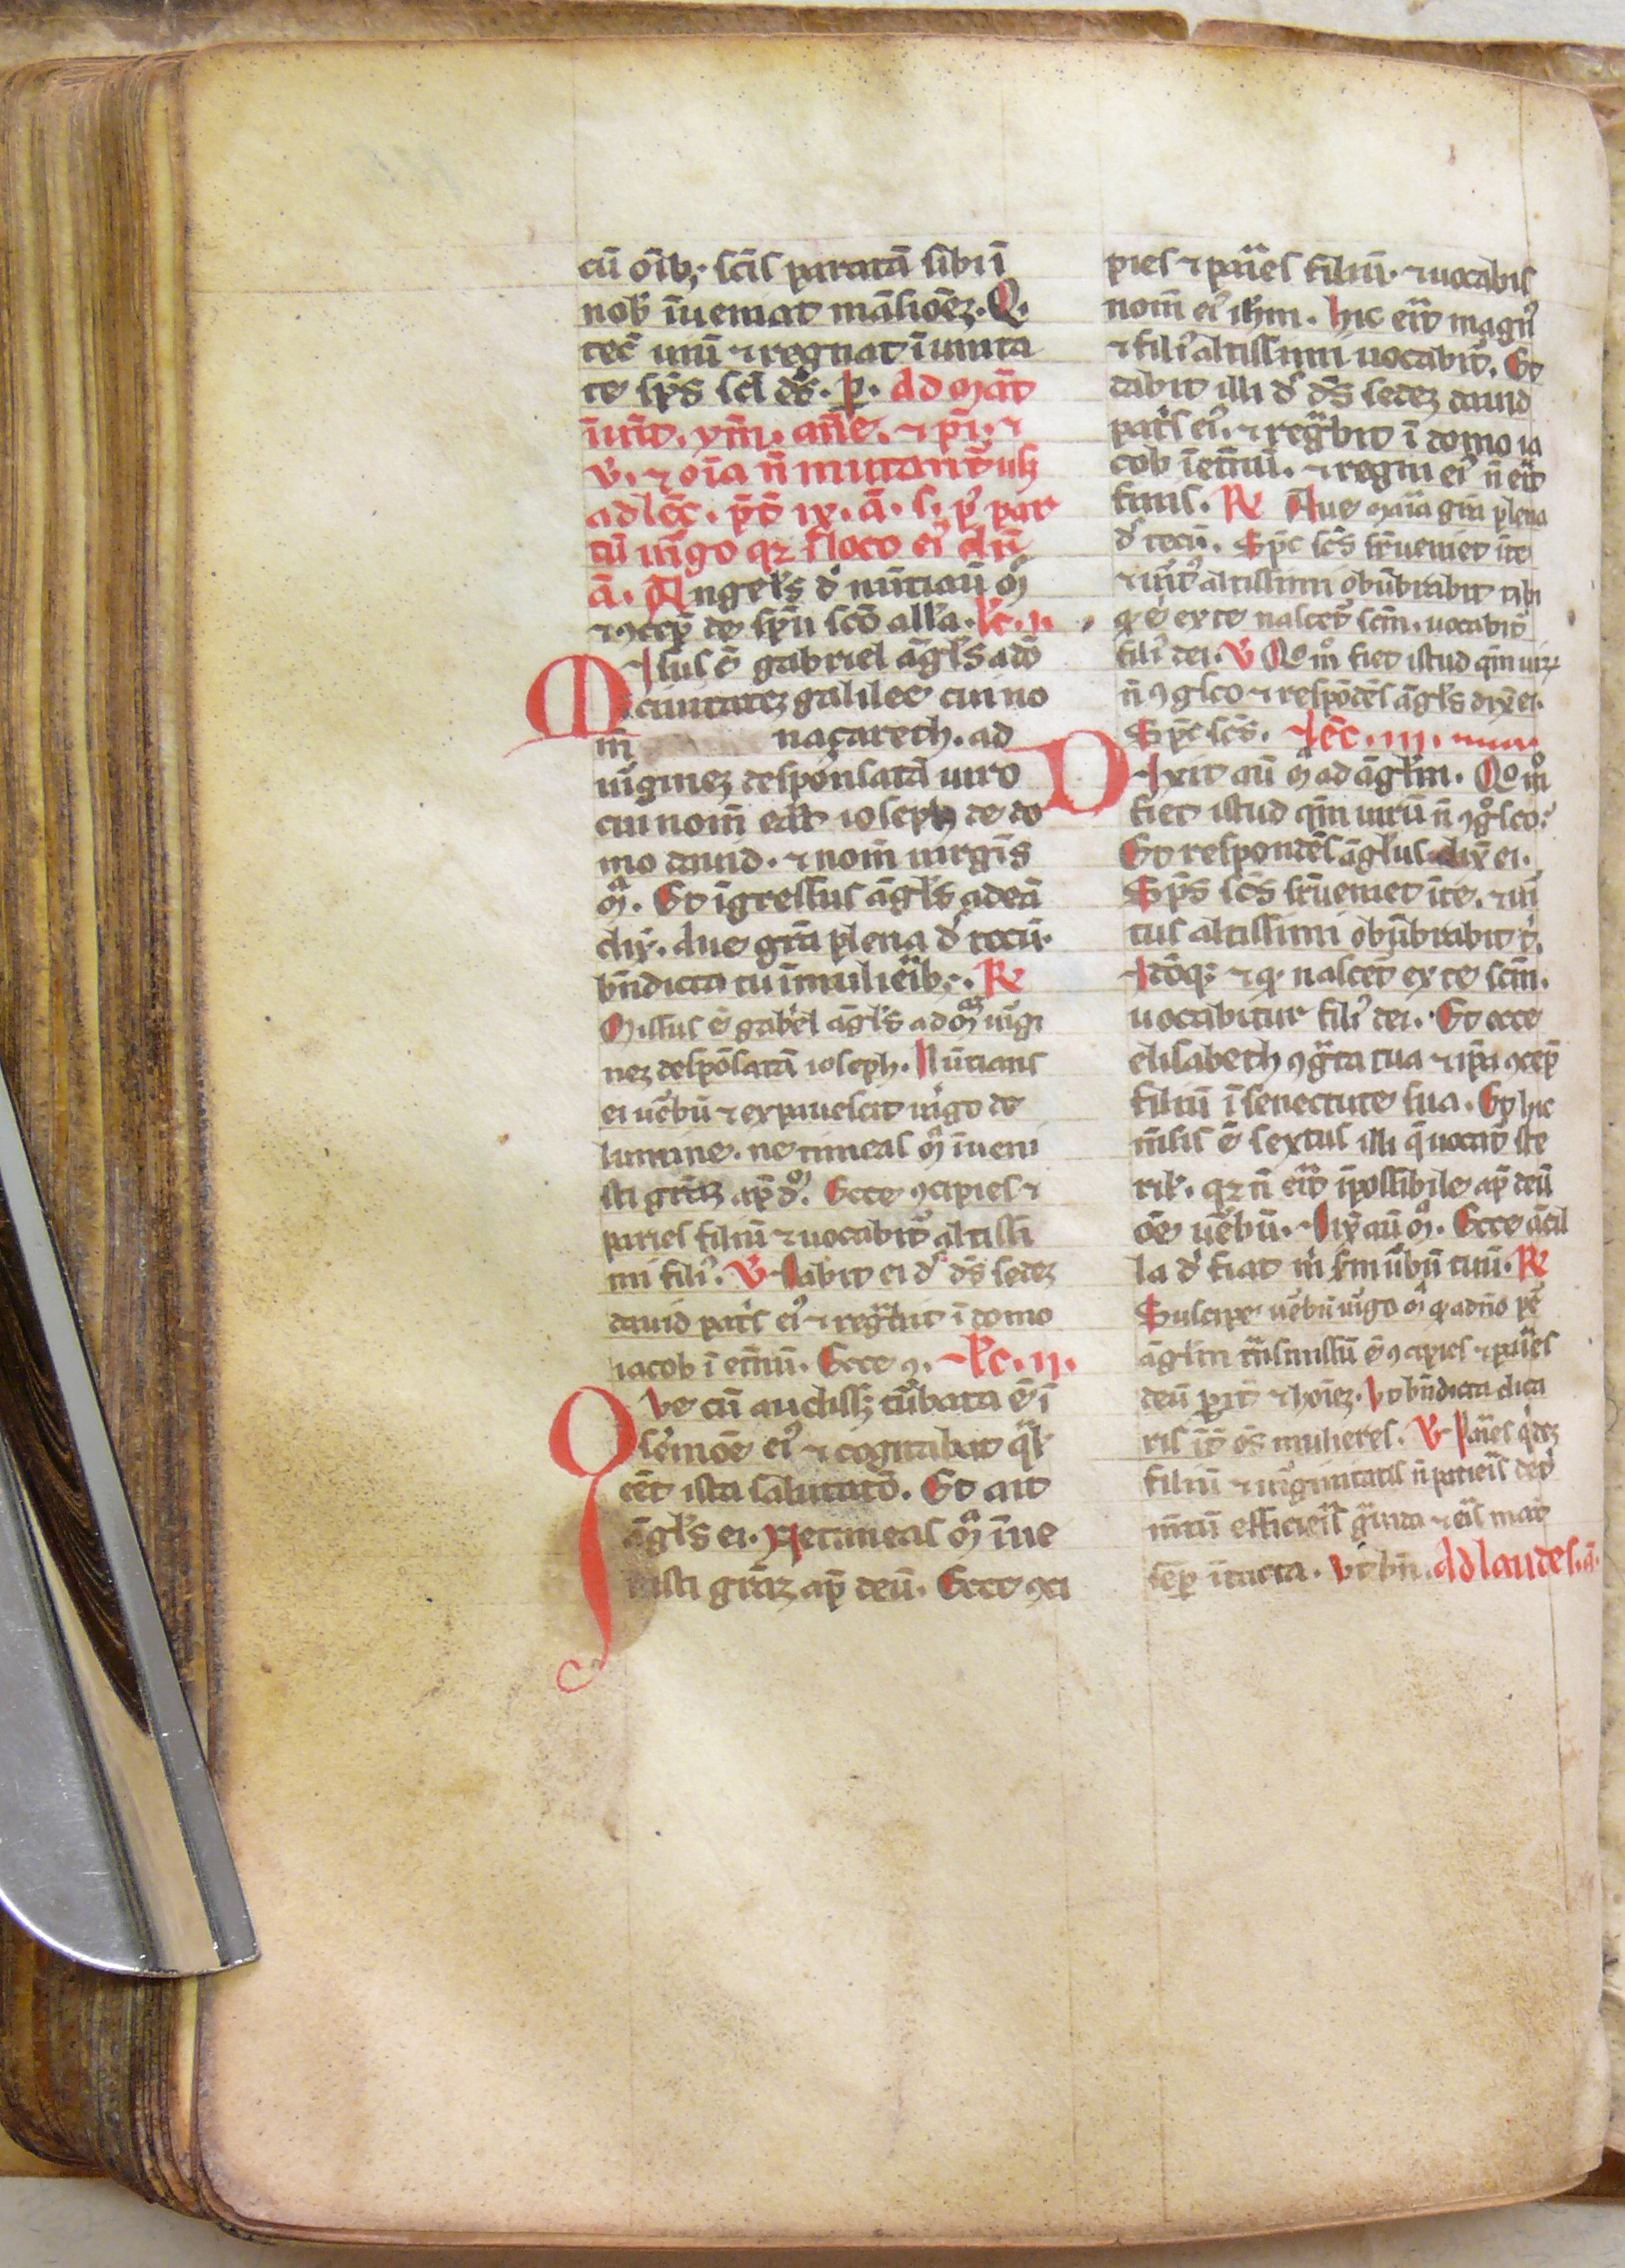 cū oīb; scīs paratā sibi ī
nob̄ īueniat māsiōēz. Q.
tec̄ uiuit ⁊ regnat ī unita
te sp̄s sc̄i d̄s. p̄. Ad mat̄
īuit̄. ym̄. an̄e. ⁊ p̄i. ⁊
v̄. ⁊ oīa n̄ mutant̄ usq̄
ad lec̄. p̄t̄ ix. ā. s. p̄ par
tū uirgo qz ī loco ei᾿ dr̄
ā. Angel̄s d̄ nūtiauit m̄
⁊ ɔcep̄ de sp̄u scō all̄a. lc̄. i.
Missus ē gabriel āgl̄s a dō
ī ciuitatez galilee cui no
m̄ naçareth. ad
uirginez desponsatā uiro
cui nom̄ erat ioseph de do
mo dauid. ⁊ nom̄ uirgīs
m̄. Et īgressus āgl̄s ad eā
dix̄. Aue gr̄a plena d̄ tecū.
bn̄dicta tu ī mulieib;. R
Missus ē gabriel āgl̄s ad mᵃz uirgi
nez despōsatā ioseph. Nūtians
ei uerbū ⁊ expauescit uirgo de
lumine. ne timeas mᵃ īueni
sti gr̄az ap̄ d̄. Ecce ɔcipies ⁊
paries filiū ⁊ uocabit̄ altissi
mi fili᾿. V Dabit ei d̄ d̄s sedez
dauid pat̄s ei᾿ ⁊ regnabit ī domo
iacob ī et̄nū. Ecce ɔ. lc̄. ii.
Que cū audiss; turbata ē ī
sermōe ei᾿ ⁊ cogitabat q̄l
eēt ista salutatō. Et ait
āgl̄s ei. Ne timeas mᵃ īue
nisti gr̄az ap̄ deū. Ecce ɔci
pies ⁊ paries filiū. ⁊ uocabis
nom̄ ei᾿ ihm. Hic erit magn᾿
⁊ fili᾿ altissimi uocabit̄. Et
dabit illi d̄ d̄s sedez dauid
pat̄s ei᾿. ⁊ regnabit ī domo ia
cob īet̄nū. ⁊ regni ei᾿ n̄ erit
finis. R Aue maria gr̄a plena
d̄ tecū. Sp̄c sc̄s supueniet īte
⁊ uirt᾿ altissimi obūbrabit tibi
q̄ ē ex te nascet̄ sc̄m. uocabit̄
fili᾿ dei. V Qᵒmᵒ fiet istud qm̄ uirz
n̄ ɔgsco ⁊ respōdēs āgl̄s dix̄ ei.
Sp̄c sc̄s. lec̄. iii.
Dixit aū mᵃ ad āgl̄m. Qᵒmᵒ
fiet istud qm̄ uirū n̄ ɔgᵒsco.
Et respondēs āgl̄us dix̄ ei.
Sp̄s sc̄s supueniet īte. ⁊ uir
tus altissimi obūbrabit t̄.
Idōq; ⁊ q̄ nascet̄ ex te sc̄m.
uocabitur fili᾿ dei. Et ecce
elisabeth ɔgᵃta tua ⁊ ip̄a ɔcep̄
filiū ī senectute sua. Et hic
m̄sis ē sextus illi q̄ uocat̄ ste
ril̄. qz n̄ erit īpossibile ap̄ deū
ōe uerbū. Dix̄ aū mᵃ. Ecce ācil
la d̄ fiat m̄ sm̄ ūbū tuū. R
Suscipe uerbū uirgo mᵃ q̄ a dn̄o p̄
āgl̄m trāsmissū ē ɔcipies ⁊ paries
deū parit̄ ⁊ hoīez. Vt bn̄dicta dica
ris īt̄ ōs mulieres. V Paries q̄dez
filiū ⁊ uirginitatis n̄ patieris det̄
mtū efficieris gᵃuida ⁊ eris mat̄
semp̄ ītacta. Vt bn̄. Ad laudes. ā.